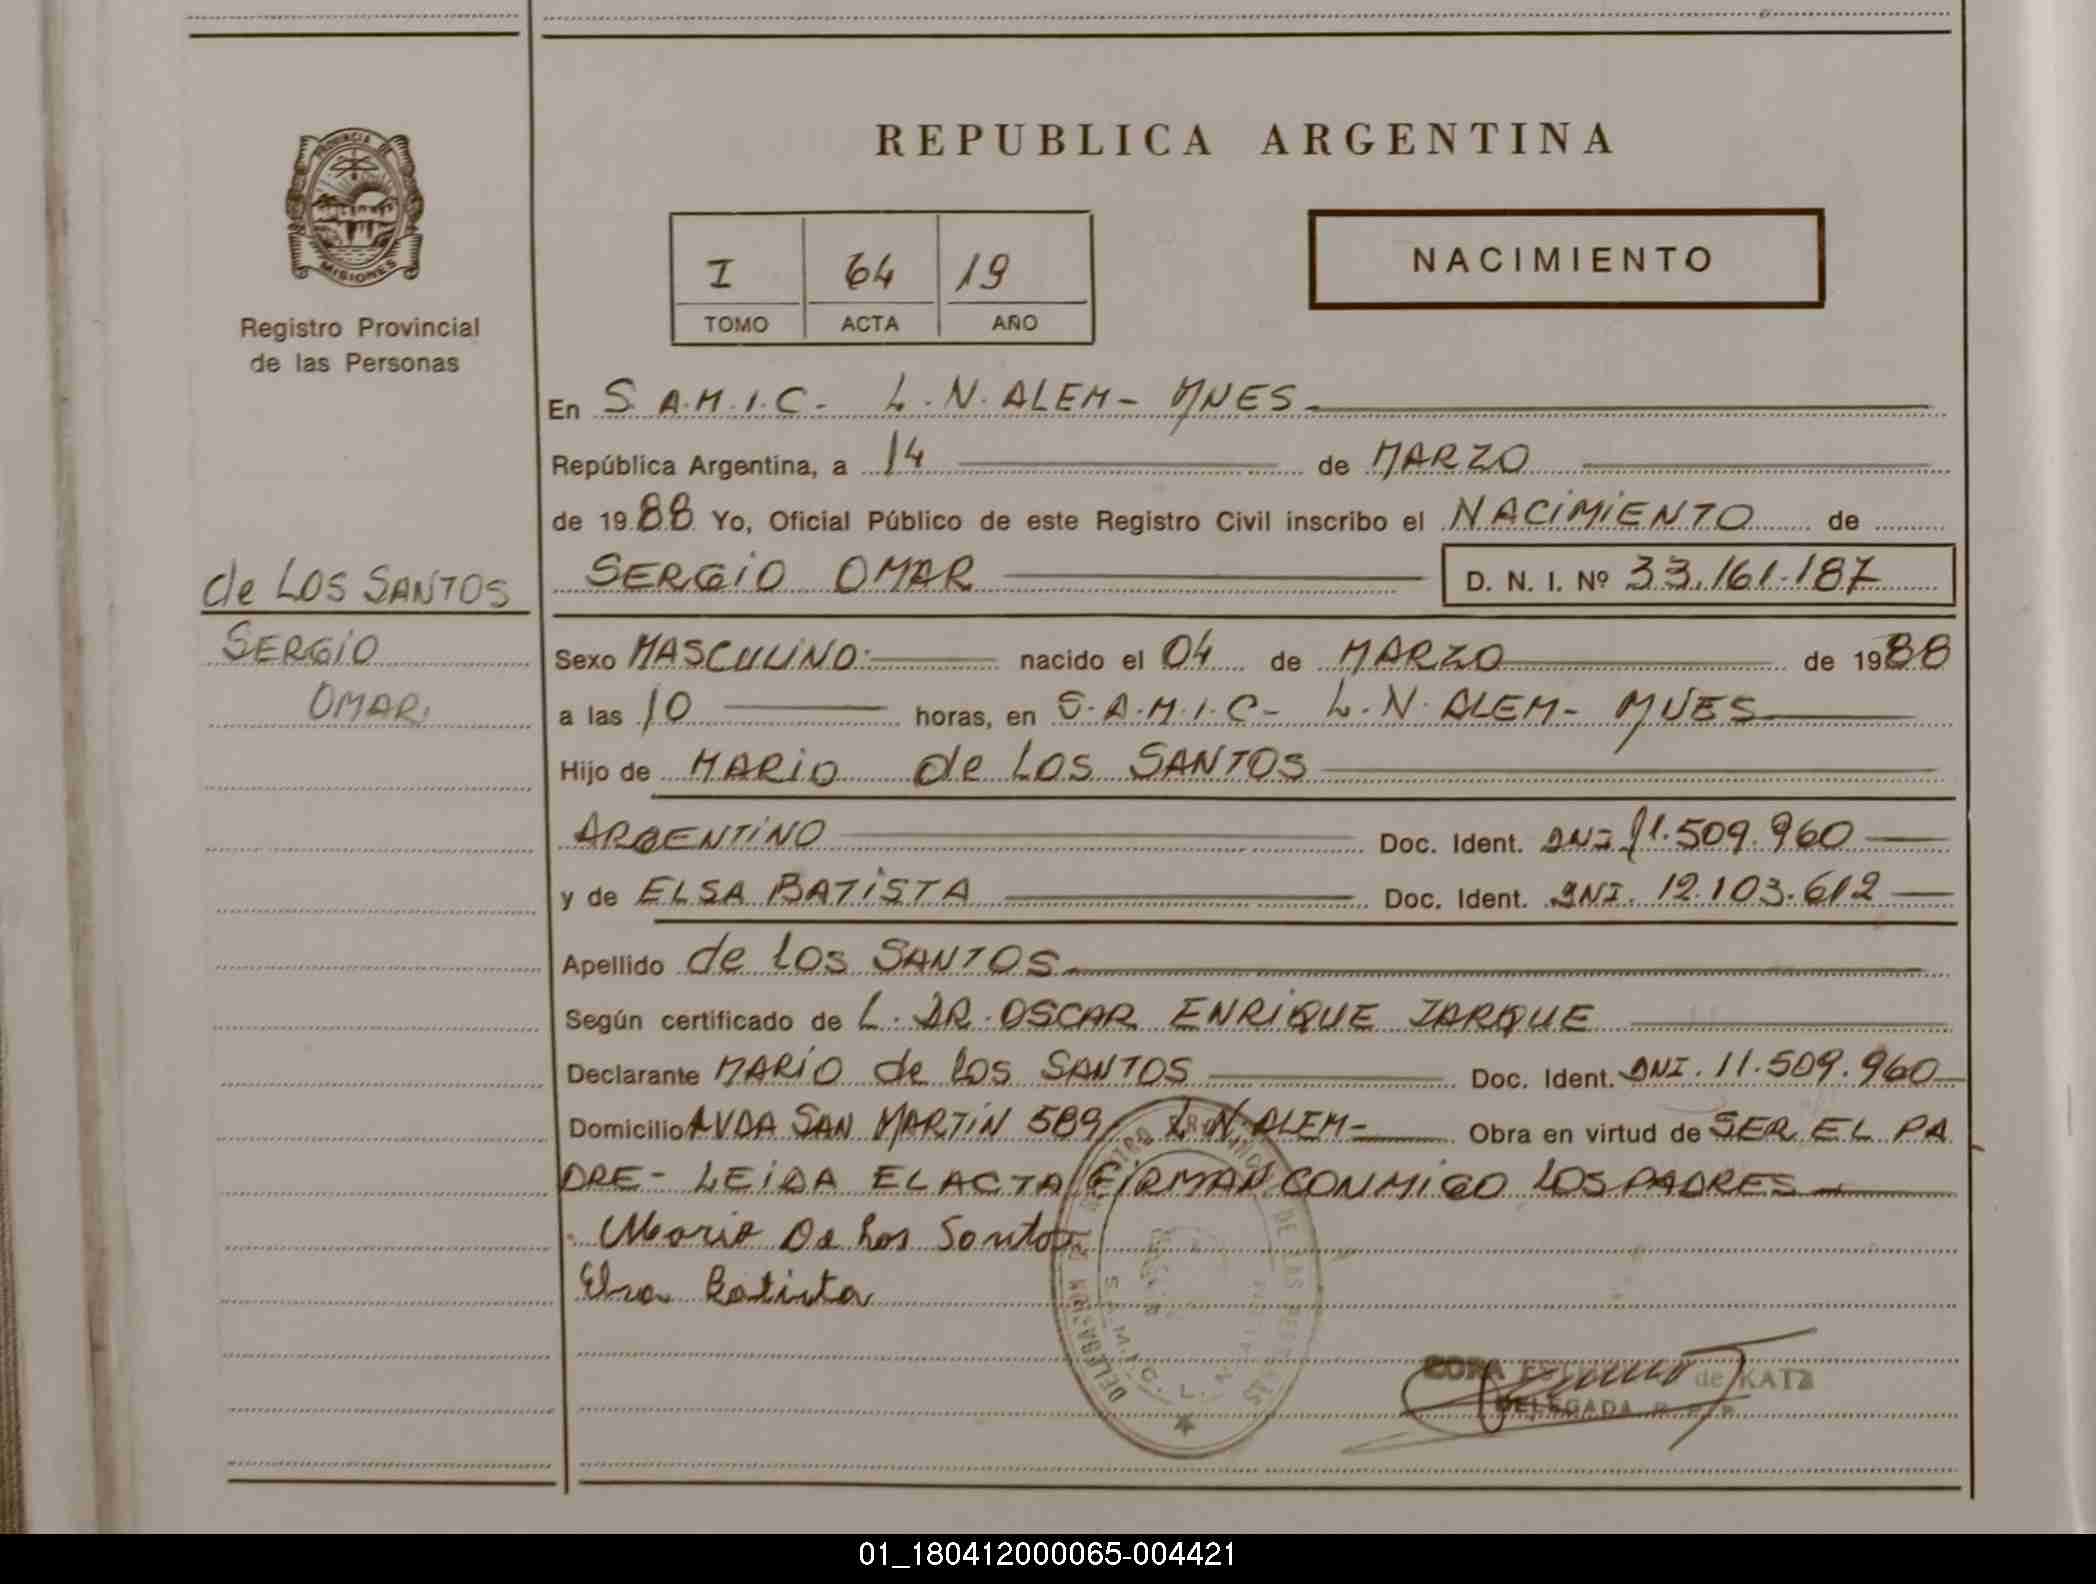 PROVINCIA DE
MISIONES
Registro Provincial
de las Personas
de LOS SANTOS
SERGIO
OMAR
REPUBLICA ARGENTINA
I 64 19
TOMO ACTA AÑO
NACIMIENTO
En S.A.M.I.C- L.N.ALEM- MNES
República Argentina, a 14 de MARZO
de 1988 Yo, Oficial Público de este Registro Civil inscribo el NACIMIENTO de
SERGIO OMAR D. N. I. Nº 33.161.187
Sexo MASCULINO nacido el 04 de MARZO de 1988
a las 10 horas, en S.A.M.I.C- L.N.ALEM- MNES
Hijo de MARIO de LOS SANTOS
ARGENTINO Doc. Ident. DNI 11.509.960
y de ELSA BATISTA Doc. Ident. DNI. 12.103.612
Apellido de LOS SANTOS
Según certificado de L. DR. OSCAR ENRIQUE JARQUE
Declarante MARIO de LOS SANTOS Doc. Ident. DNI. 11.509.960
Domicilio AVDA SAN MARTIN 589 L.N.ALEM- Obra en virtud de SER EL PA
DRE- LEIDA EL ACTA FIRMAN CONMIGO LOS PADRES
Mario De Los Santos
Elsa Batista
DE LAS
S.A.M.I.C. L.N.
de KATZ
DELEGADA R. P. P.
01_180412000065-004421